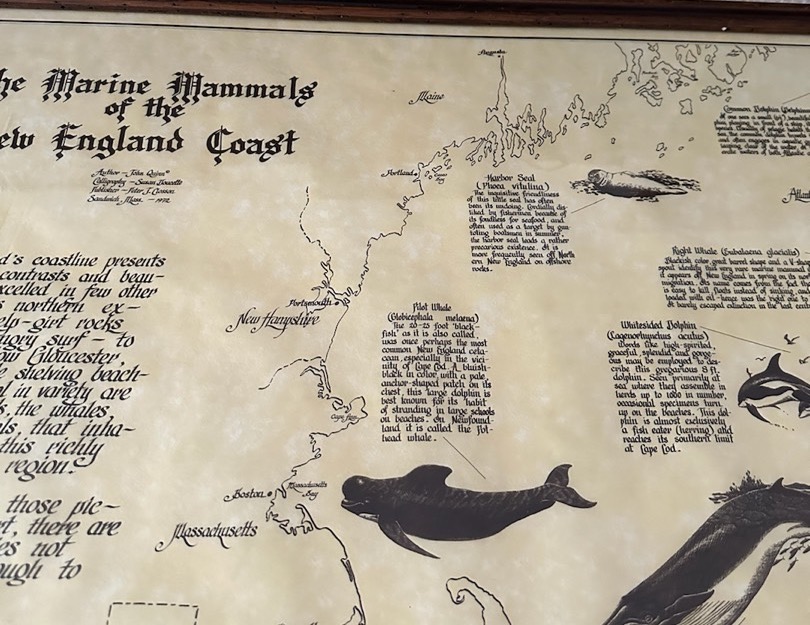 he Marine Mammals
of the
ew England Coast
Author - John Quinn
Calligraphy - Susan
Publisher - Peter J.
Sandwich, Mass. - 1972
d's coastline presents
contrasts and beau-
xcelled in few other
s northern ex-
elp-girt rocks
ngry surf - to
ow Gloucester,
e shelving beach-
l in variety are
s, the whales,
ls, that inha-
this richly
region.
those pic-
rt, there are
es not
ough to
Augusta
Maine
Portland
Portsmouth
New Hampshire
Cape Ann
Boston
Massachusetts
Bay
Massachusetts
Harbor Seal
(Phoca vitulina)
The inquisitive friendliness
of this little seal has often
been its undoing. Cordially dis-
liked by fishermen because of
its fondness for seafood, and
often used as a target by gun
toting boatsmen in summer,
the harbor seal leads a rather
precarious existence. It is
more frequently seen off North
ern New England on offshore
rocks.
Pilot Whale
(Globicephala melaena)
The 20-25 foot "black-
fish" as it is also called,
was once perhaps the most
common New England ceta-
cean, especially in the vici-
nity of Cape Cod. A bluish-
black in color with a pale,
anchor-shaped patch on its
chest, this large dolphin is
best known for its habit
of stranding in large schools
on beaches. On Newfound-
land it is called the Pot-
head whale.
Common Dolphin
Atlant
Right Whale (Eubalaena glacialis)
Blackish color, great barrel shape and a V-shap
spout identify this very rare marine mammal.
it appears off New England in spring on its nort
migration. Its name comes from the fact tha
is easy to kill, floats instead of sinking, and
loaded with oil - hence was the right one to
It barely escaped extinction in the last
Whitesided Dolphin
(Lagenorhynchus acutus)
Words like high-spirited,
graceful, splendid and gorge-
ous may be employed to des-
cribe this gregarious 8 ft.
dolphin. Seen primarily at
sea where they assemble in
herds up to 1000 in number,
occasional specimens turn
up on the beaches. This dol-
phin is almost exclusively
a fish eater (herring) and
reaches its southern limit
at Cape Cod.